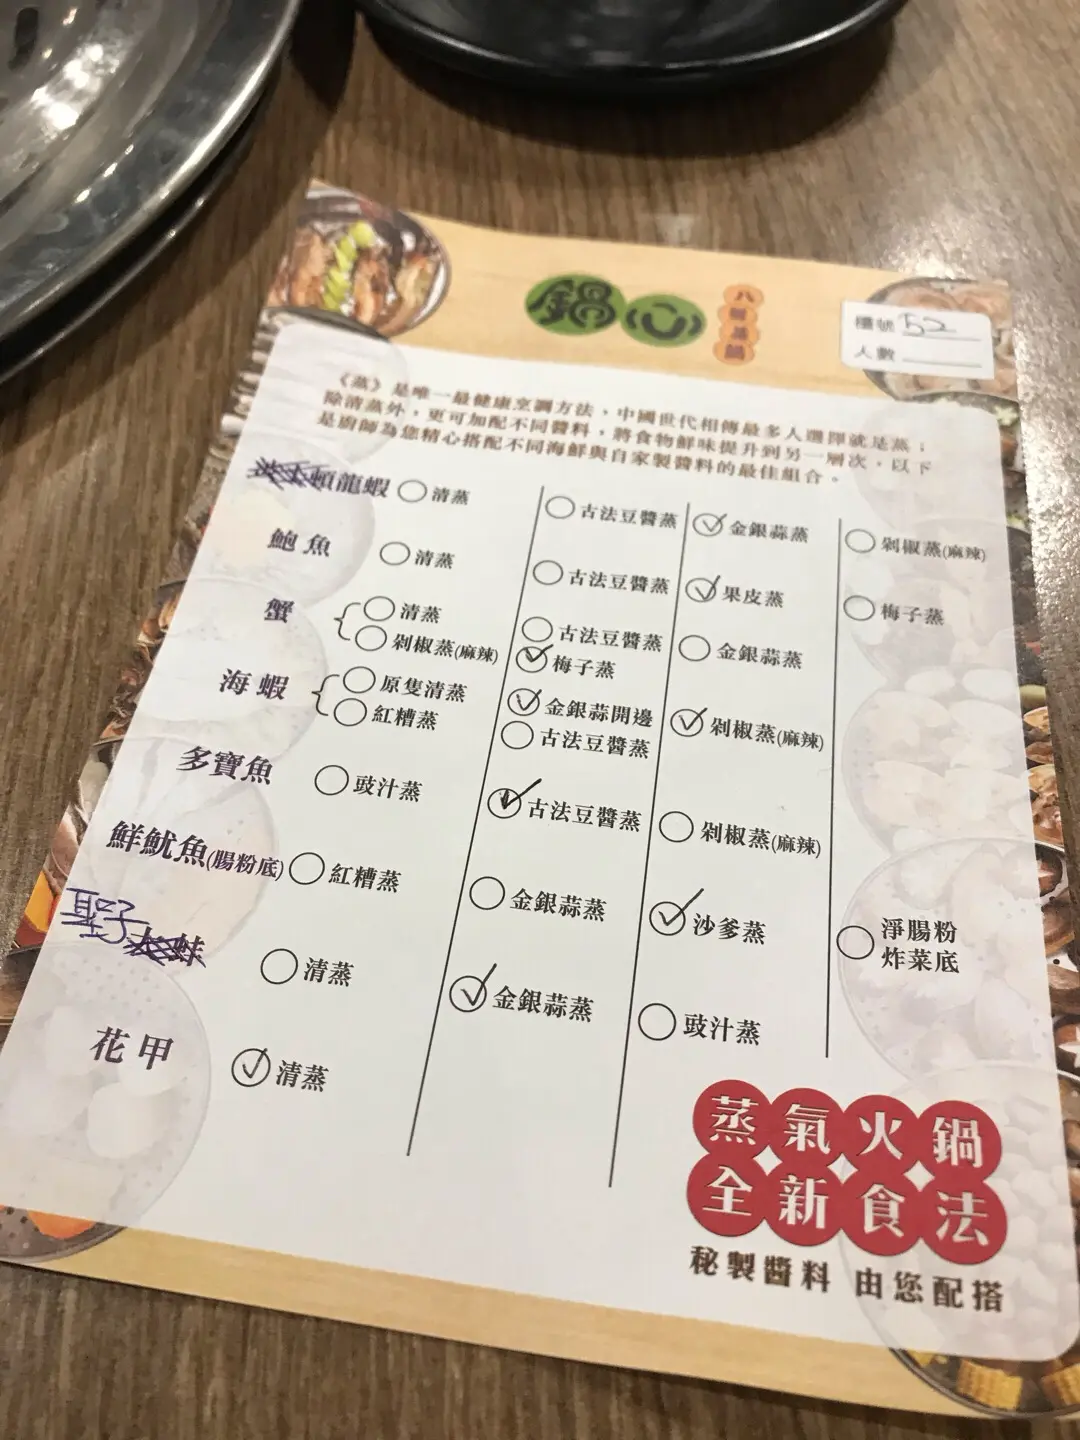 鍋心
八爪蒸鍋
檯號 52
人數
《蒸》是唯一最健康烹調方法，中國世代相傳最多人選擇就是蒸；
除清蒸外，更可加配不同醬料，將食物鮮味提升到另一層次，以下
是廚師為您精心搭配不同海鮮與自家製醬料的最佳組合。
頓龍蝦 清蒸 古法豆醬蒸 金銀蒜蒸 剁椒蒸(麻辣)
鮑魚 清蒸 古法豆醬蒸 果皮蒸 梅子蒸
蟹 清蒸 古法豆醬蒸 金銀蒜蒸
剁椒蒸(麻辣) 梅子蒸
海蝦 原隻清蒸 金銀蒜開邊 剁椒蒸(麻辣)
紅糟蒸 古法豆醬蒸
多寶魚 豉汁蒸 古法豆醬蒸 剁椒蒸(麻辣)
鮮魷魚(腸粉底) 紅糟蒸 金銀蒜蒸 沙爹蒸 淨腸粉
炸菜底
聖子 清蒸 金銀蒜蒸 豉汁蒸
花甲 清蒸
蒸氣火鍋
全新食法
秘製醬料 由您配搭